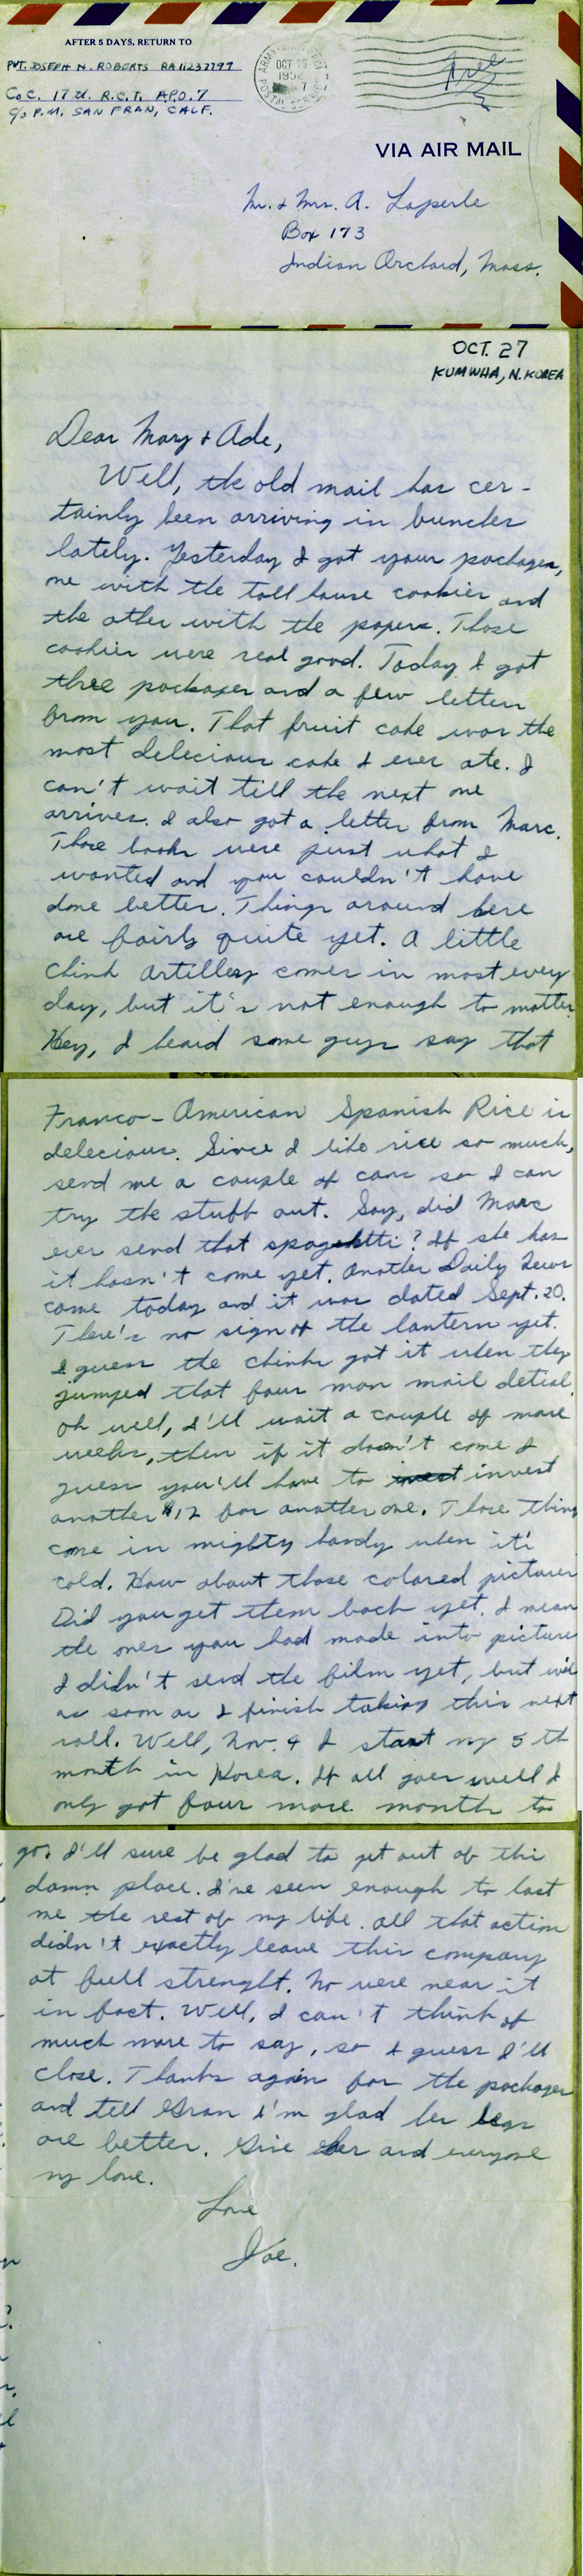 AFTER 5 DAYS, RETURN TO
PVT. JOSEPH N. ROBERTS RA11237797
Co C. 17th R.C.T. A.P.O. 7
c/o P.M. SAN FRAN, CALF.
OCT
1952
Free
VIA AIR MAIL
Mr. & Mrs. A. Laperle
Box 173
Indian Orchard, Mass.
OCT. 27
KUMWHA, N. KOREA
Dear Mary & Ade,
Well, the old mail has cer-
tainly been arriving in bunches
lately. Yesterday I got your packages,
one with the toll house cookies and
the other with the papers. Those
cookies were real good. Today I got
three packages and a few letters
from you. That fruit cake was the
most delecious cake I ever ate. I
can't wait till the next one
arrives. I also got a letter from Marc.
Those books were just what I
wanted and you couldn't have
done better. Things around here
are fairly quite yet. A little
chink artillery comes in most every
day, but it's not enough to matter.
Hey, I heard some guys say that
Franco-American Spanish Rice is
delecious. Since I like rice so much,
send me a couple of cans so I can
try the stuff out. Say, did Marc
ever send that spaghetti? If she has
it hasn't come yet. Another Daily News
came today and it was dated Sept. 20.
There's no sign of the lantern yet.
I guess the chinks got it when they
jumped that four man mail detial.
Oh well, I'll wait a couple of more
weeks, then if it doesn't come I
guess you'll have to invest
another $12 for another one. Those things
come in mighty handy when it's
cold. How about those colored pictures
Did you get them back yet. I mean
the ones you had made into pictures
I didn't send the film yet, but will
as soon as I finish taking this next
roll. Well, Nov. 4 I start my 5th
month in Korea. If all goes well I
only got four more month to
go. I'll sure be glad to get out of this
damn place. I've seen enough to last
me the rest of my life. All that action
didn't exactly leave this company
at full strenght. No were near it
in fact. Well, I can't think of
much more to say, so I guess I'll
close. Thanks again for the packages
and tell Gran I'm glad her legs
are better. Give her and everyone
my love.
Love
Joe.